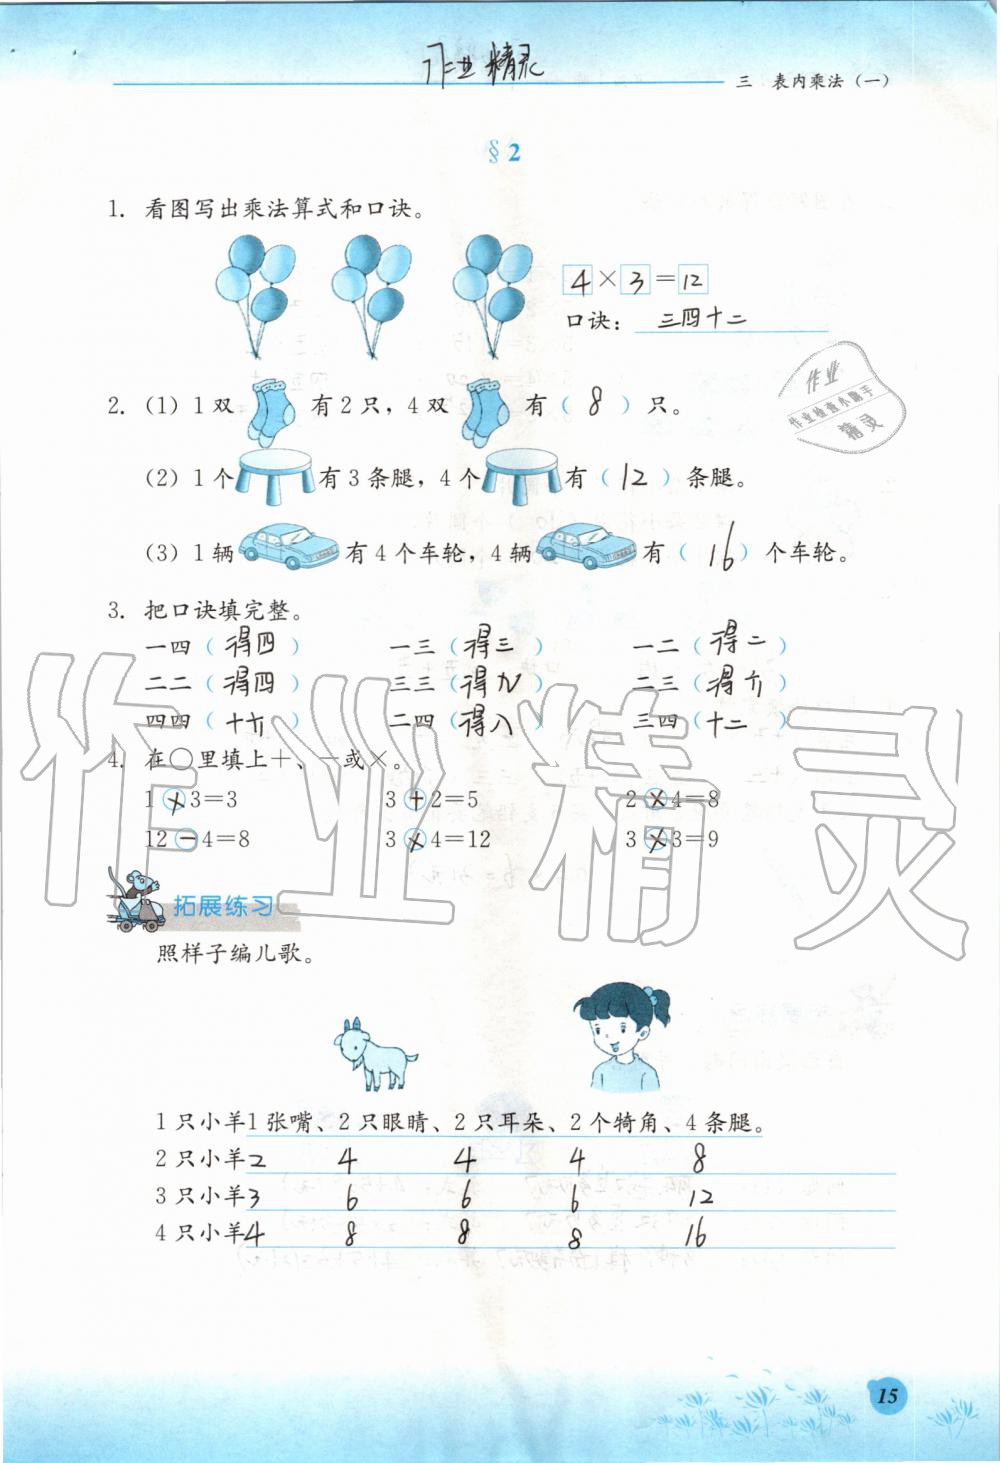 作业精灵
三 表内乘法（一）
§2
1. 看图写出乘法算式和口诀。
4×3=12
口诀：三四十二
作业
作业检查小助手
精灵
2.（1）1双有2只，4双有（8）只。
（2）1个有3条腿，4个有（12）条腿。
（3）1辆有4个车轮，4辆有（16）个车轮。
3. 把口诀填完整。
一四（得四） 一三（得三） 一二（得二）
二二（得四） 三三（得九） 二三（得六）
四四（十六） 二四（得八） 三四（十二）
4. 在○里填上+、-或×。
1×3=3 3+2=5 2×4=8
12-4=8 3×4=12 3×3=9
作业精灵
拓展练习
照样子编儿歌。
1只小羊1张嘴、2只眼睛、2只耳朵、2个犄角、4条腿。
2只小羊2 4 4 4 8
3只小羊3 6 6 6 12
4只小羊4 8 8 8 16
15